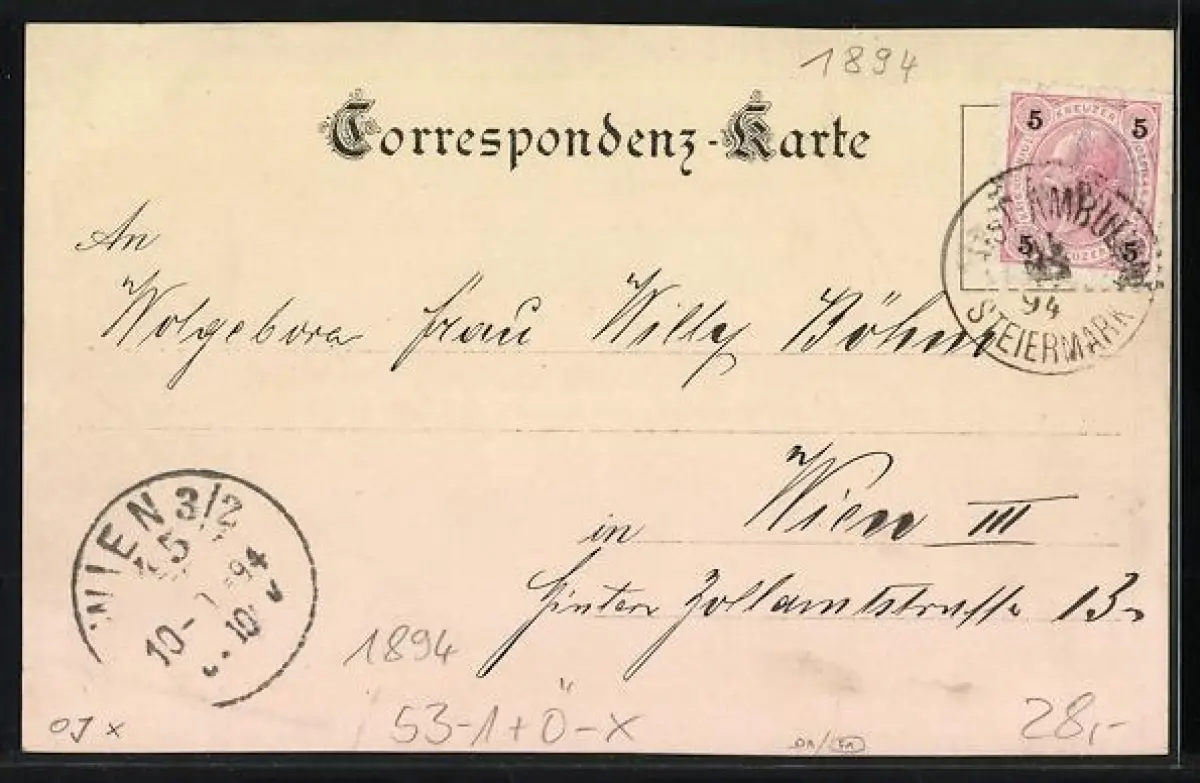 1894
Correspondenz-Karte
5 KREUZER 5
5 5
94
STEIERMARK
An
Wolgebora Frau Willy Böhm
in Wien III
Hintere Zollamtstrasse 13
WIEN 3/2
15
94
10-
10
1894
53-1+Ö-X
28,-
OJ x